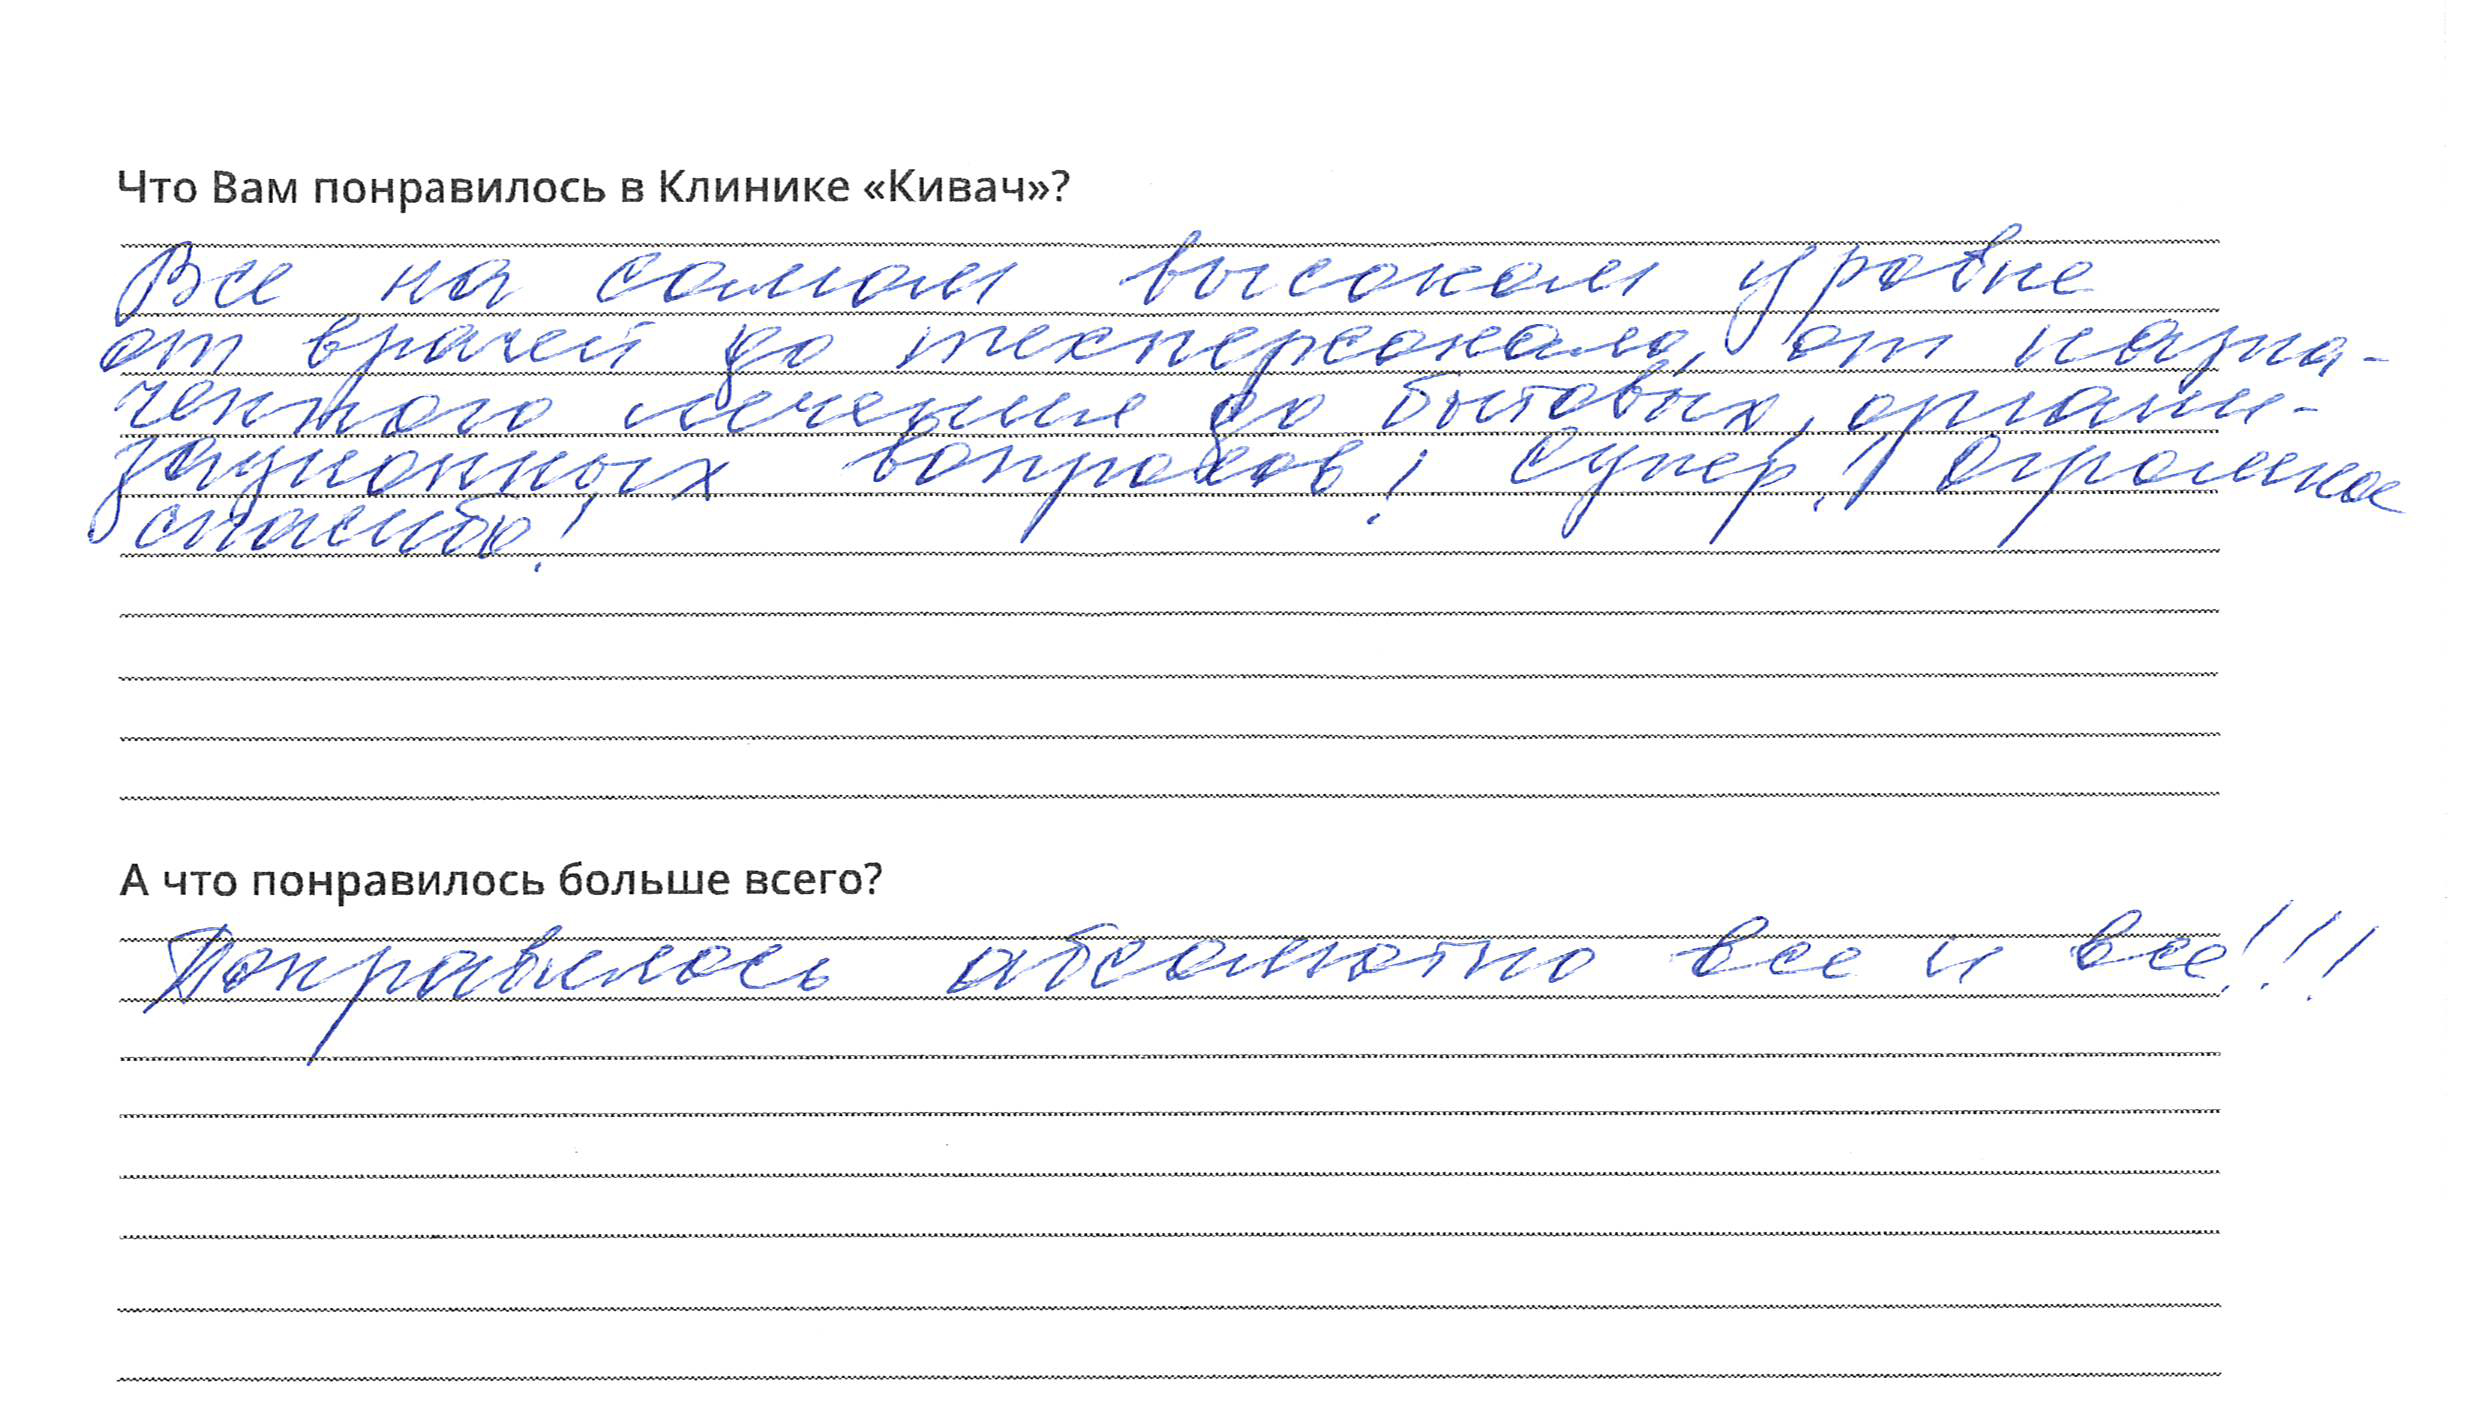 Что Вам понравилось в Клинике «Кивач»?
Все на самом высоком уровне
от врачей до техперсонала, от назна-
ченного лечения до бытовых, органи-
зационных вопросов! Супер! Огромное
спасибо!
А что понравилось больше всего?
Понравилось абсолютно все и все!!!